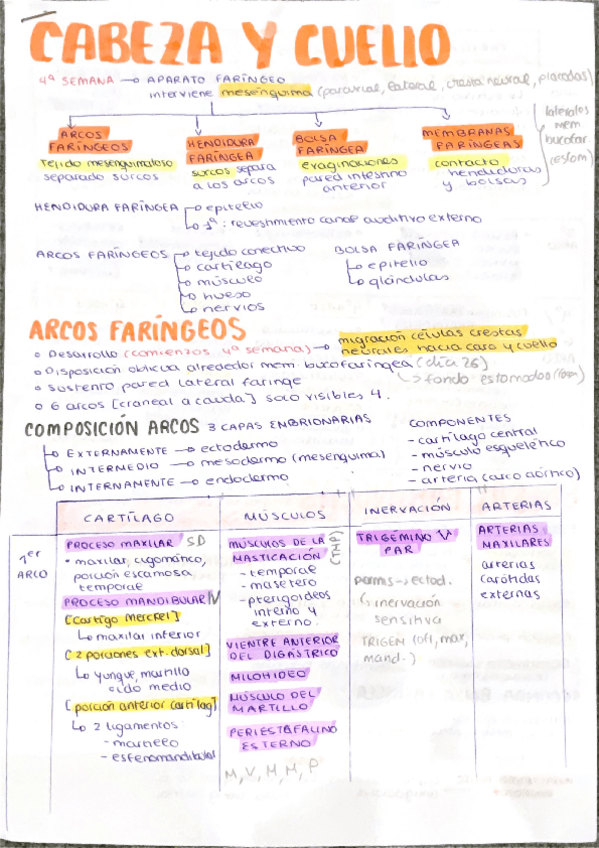 CABEZA Y CUELLO
4ª SEMANA → APARATO FARÍNGEO
interviene mesénquima (paraxial, lateral, cresta neural, placodas)
ARCOS FARÍNGEOS
tejido mesenquimatoso
separado surcos
HENDIDURA FARÍNGEA
surcos separa
a los arcos
BOLSA FARÍNGEA
evaginaciones
pared intestino
anterior
MEMBRANAS FARÍNGEAS
contacto
hendiduras
y bolsas
laterales
mem
bucofar.
(estom)
HENDIDURA FARÍNGEA → epitelio
→ 1ª: revestimiento canal auditivo externo
ARCOS FARÍNGEOS → tejido conectivo
→ cartílago
→ músculo
→ hueso
→ nervios
BOLSA FARÍNGEA
→ epitelio
→ glándulas
ARCOS FARÍNGEOS
o Desarrollo (comienzos 4ª semana) → migración células crestas
neurales hacia cara y cuello
o Disposición oblicua alrededor mem bucofaríngea (día 26)
↳ fondo estomodeo
o Sustento pared lateral faringe
o 6 arcos [craneal a caudal] solo visibles 4.
COMPOSICIÓN ARCOS 3 CAPAS EMBRIONARIAS
→ EXTERNAMENTE → ectodermo
→ INTERMEDIO → mesodermo (mesenquima)
→ INTERNAMENTE → endodermo
COMPONENTES
- cartílago central
- músculo esquelético
- nervio
- arteria (arco aórtico)
CARTÍLAGO
MÚSCULOS
INERVACIÓN
ARTERIAS
1er
ARCO
PROCESO MAXILAR SD
• maxilar, cigomático,
porción escamosa
temporal
PROCESO MANDIBULAR IV
[cartigo Merckel]
↳ maxilar inferior
[2 porciones ext. dorsal]
↳ yunque, martillo
oído medio
[porción anterior cartílag]
↳ 2 ligamentos
- martillo
- esfenomandibular
MÚSCULOS DE LA
MASTICACIÓN
(TMP)
- temporal
- masetero
- pterigoideos
interno y
externo.
VIENTRE ANTERIOR
DEL DIGÁSTRICO
MILOHIDEO
MÚSCULO DEL
MARTILLO
PERIESTAFALINO
ESTERNO
M, V, M, M, P
TRIGEMINO V
PAR
→ ectod.
↳ inervación
sensitiva
TRIGEM (oft, max,
mand.)
ARTERIAS
MAXILARES
arterias
carótidas
externas